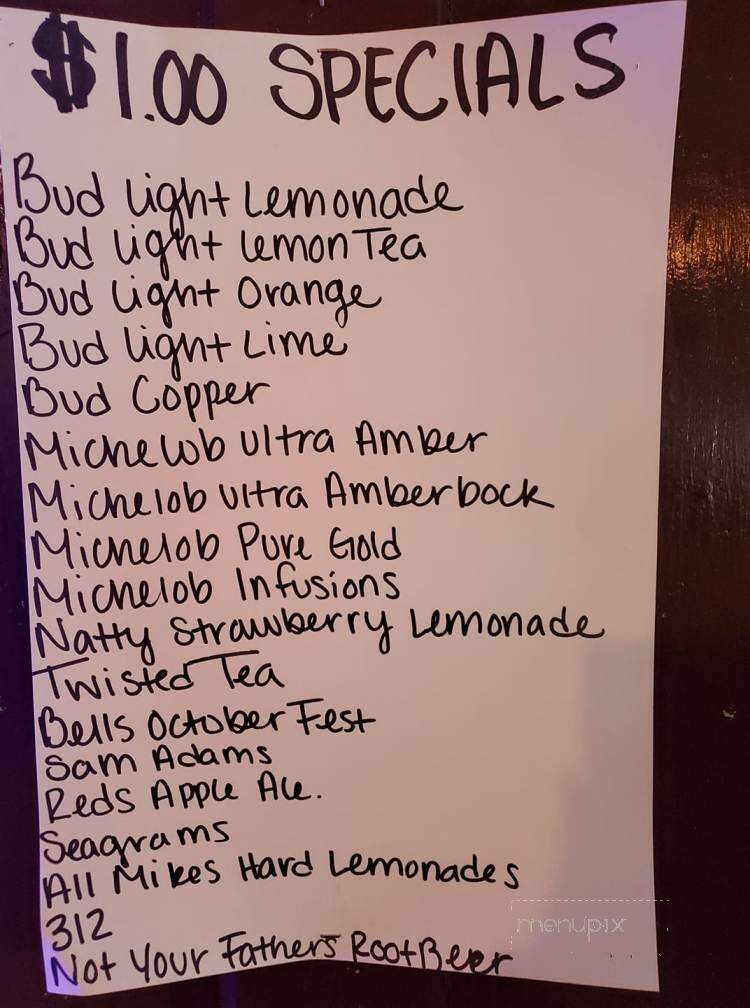 $1.00 SPECIALS
Bud Light Lemonade
Bud Light Lemon Tea
Bud Light Orange
Bud Light Lime
Bud Copper
Michelob Ultra Amber
Michelob Ultra Amberbock
Michelob Pure Gold
Michelob Infusions
Natty Strawberry Lemonade
Twisted Tea
Bells October Fest
Sam Adams
Reds Apple Ale.
Seagrams
All Mikes Hard Lemonades
312
Not Your Father's Root Beer
menupix